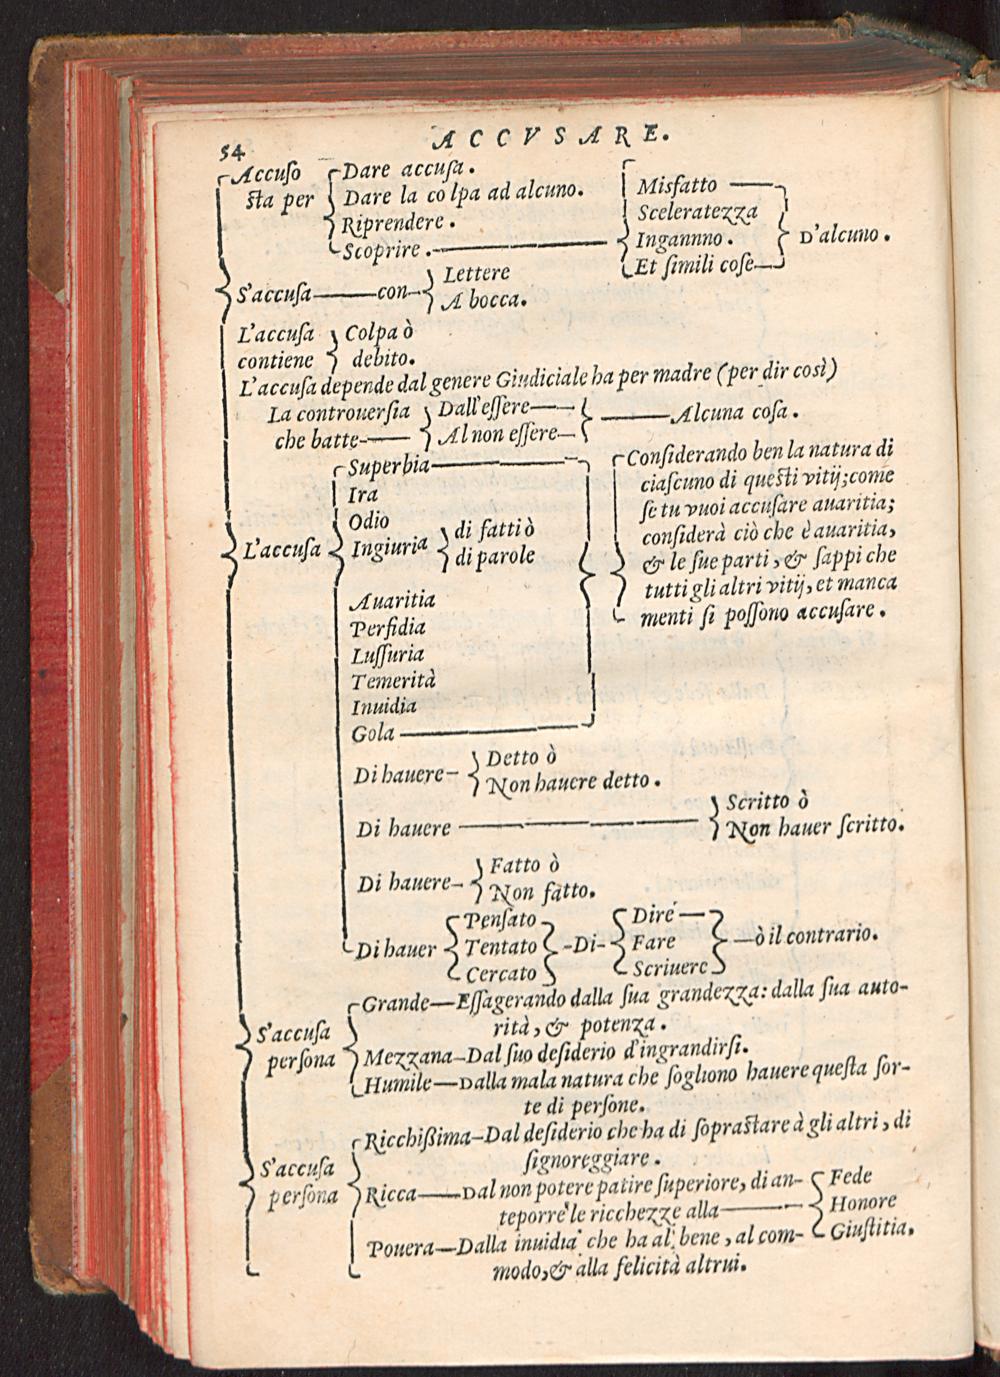 54
ACCVSARE.
Accuſo
ſta per
Dare accuſa.
Dare la colpa ad alcuno.
Riprendere.
Scoprire.
Misfatto
Sceleratezza
Ingannno.
Et ſimili coſe
D'alcuno.
S'accuſa con
Lettere
A bocca.
L'accuſa
contiene
Colpa ò
debito.
L'accuſa depende dal genere Giudiciale ha per madre (per dir così)
La controuerſia
che batte
Dall'eſſere
Al non eſſere
Alcuna coſa.
L'accuſa
Superbia
Ira
Odio
Ingiuria
di fatti ò
di parole
Auaritia
Perfidia
Luſſuria
Temerità
Inuidia
Gola
Conſiderando ben la natura di
ciaſcuno di queſti vitij; come
ſe tu vuoi accuſare auaritia;
conſiderà ciò che è auaritia,
& le ſue parti, & ſappi che
tutti gli altri vitij, et manca
menti ſi poſſono accuſare.
Di hauere
Detto ò
Non hauere detto.
Di hauere
Scritto ò
Non hauer ſcritto.
Di hauere
Fatto ò
Non fatto.
Di hauer
Penſato
Tentato
Cercato
Di
Dire
Fare
Scriuere
ò il contrario.
S'accuſa
perſona
Grande—Eſſagerando dalla ſua grandezza: dalla ſua auto-
rità, & potenza.
Mezzana—Dal ſuo deſiderio d'ingrandirſi.
Humile—Dalla mala natura che ſogliono hauere queſta ſor-
te di perſone.
S'accuſa
perſona
Ricchißima—Dal deſiderio che ha di ſopraſtare à gli altri, di
ſignoreggiare.
Ricca—Dal non potere patire ſuperiore, di an-
teporre le ricchezze alla
Fede
Honore
Giuſtitia.
Pouera—Dalla inuidia che ha al bene, al com-
modo, & alla felicità altrui.